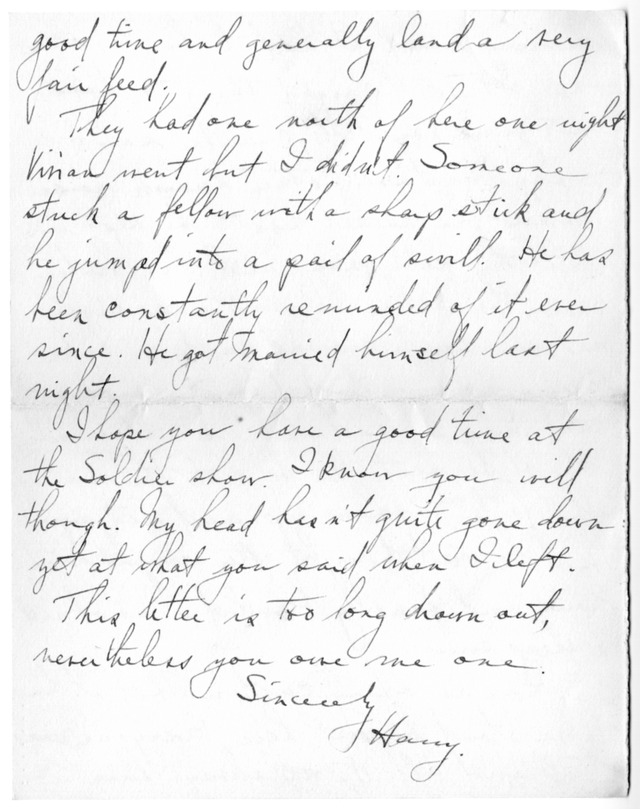 good time and generally land a very
fair feed.
They had one north of here one night
Vivian went but I didn't. Someone
stuck a fellow with a sharp stick and
he jumped into a pail of swill. He has
been constantly reminded of it ever
since. He got married himself last
night.
I hope you have a good time at
the Soldier show. I know you will
though. My head hasn't quite gone down
yet at what you said when I left.
This letter is too long drawn out,
nevertheless you owe me one.
Sincerely
Harry.